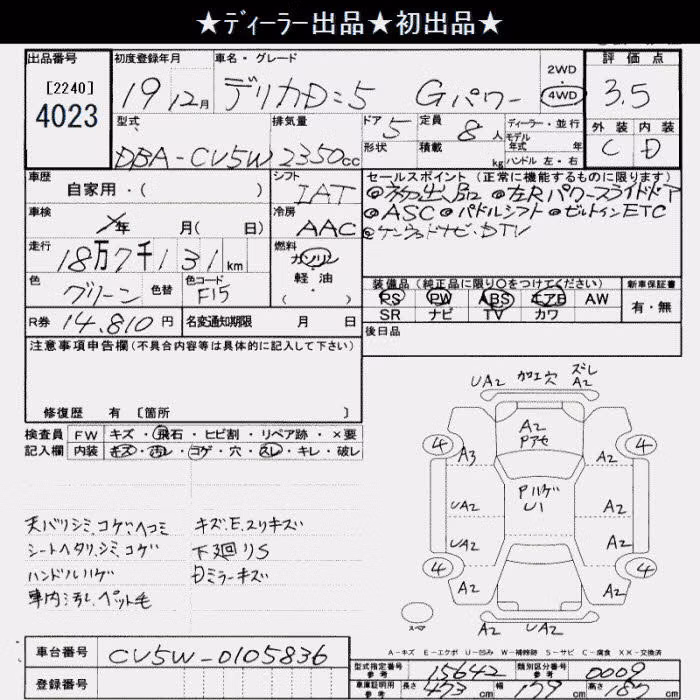 ★ディーラー出品★初出品★
出品番号
[2240]
4023
初度登録年月
19年12月
車名・グレード
デリカD:5 Gパワー
2WD
4WD
評価点
3.5
外装 内装
C D
型式
DBA-CV5W
排気量
2350cc
ドア 5
形状
定員 8人
積載 kg
ディーラー・並行
モデル
年式 年
ハンドル 左・右
車歴
自家用・( )
シフト
IAT
セールスポイント(正常に機能するものに限ります)
◎初出品 ◎左Rパワースライドドア
◎ASC ◎パドルシフト ◎ビルトインETC
◎ケンウッドナビ・DTV
車検
年 月( 日)
冷房
AAC
走行
18万7千131km
燃料
ガソリン
軽油
( )
色
グリーン
色替
色コード
F15
装備品(純正品に限り○をつけてください)
新車保証書
PS PW ABS エアB AW
SR ナビ TV カワ
有・無
R券 14,810円
名変通知期限 月 日
後日品
注意事項申告欄(不具合内容等は具体的に記入して下さい)
修復歴 有 [箇所 ]
検査員
記入欄
FW キズ・飛石・ヒビ割・リペア跡・×要
内装 キズ・汚レ・コゲ・穴・スレ・キレ・破レ
天バリシミ、コゲ、ヘコミ
シートヘタリ、シミ、コゲ
ハンドルハゲ
車内汚し、ペット毛
キズ、E、スリキズ
下廻りS
Dミラーキズ
UA2 加工穴 ズレ
A2
4 A2 4
Pアセ
A3 A2
Pハゲ
U1
UA2 A2
UA2 A2
4 4
A2 A2
スペア
A2 UA2
A-キズ E-エクボ U-凹み W-補修跡 S-サビ C-腐食 XX-交換済
車台番号
CV5W-0105836
登録番号
型式指定番号
参考
15642
類別区分番号
参考
0009
車庫証明用
参考
長さ 473cm 幅 179cm 高さ 187cm